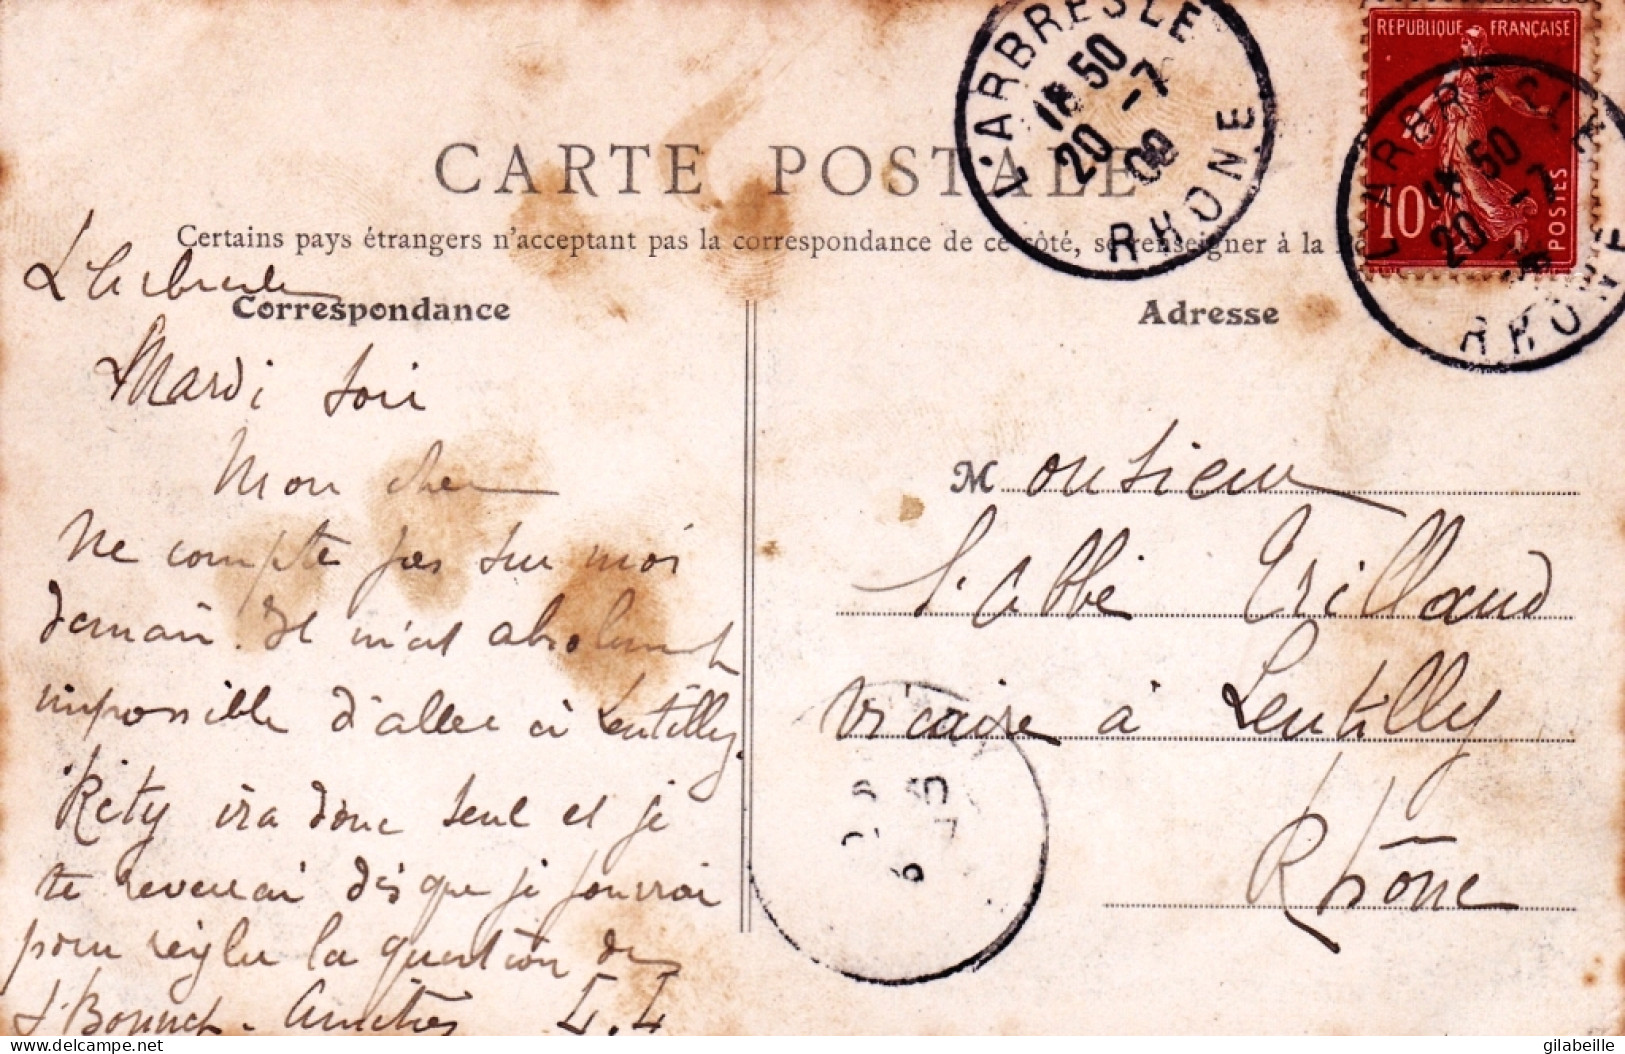 RÉPUBLIQUE FRANÇAISE
10
POSTES
L'ARBRESLE
18 50
20 -7
09
RHONE
L'ARBRESLE
18 50
20 -7
RHONE
CARTE POSTALE
Certains pays étrangers n'acceptant pas la correspondance de ce côté, se renseigner à la
Correspondance
Adresse
L'Arbresle
Mardi soir
Mon cher
Ne compte pas sur moi
demain. Il m'est absolument
impossible d'aller à Lentilly.
Rity ira donc seul et je
te reverrai dès que je pourrai
pour régler la question de
St Bonnet - Amitiés
Monsieur
l'Abbé Trillaud
Vicaire à Lentilly
Rhône
delcampe.net
gilabeille